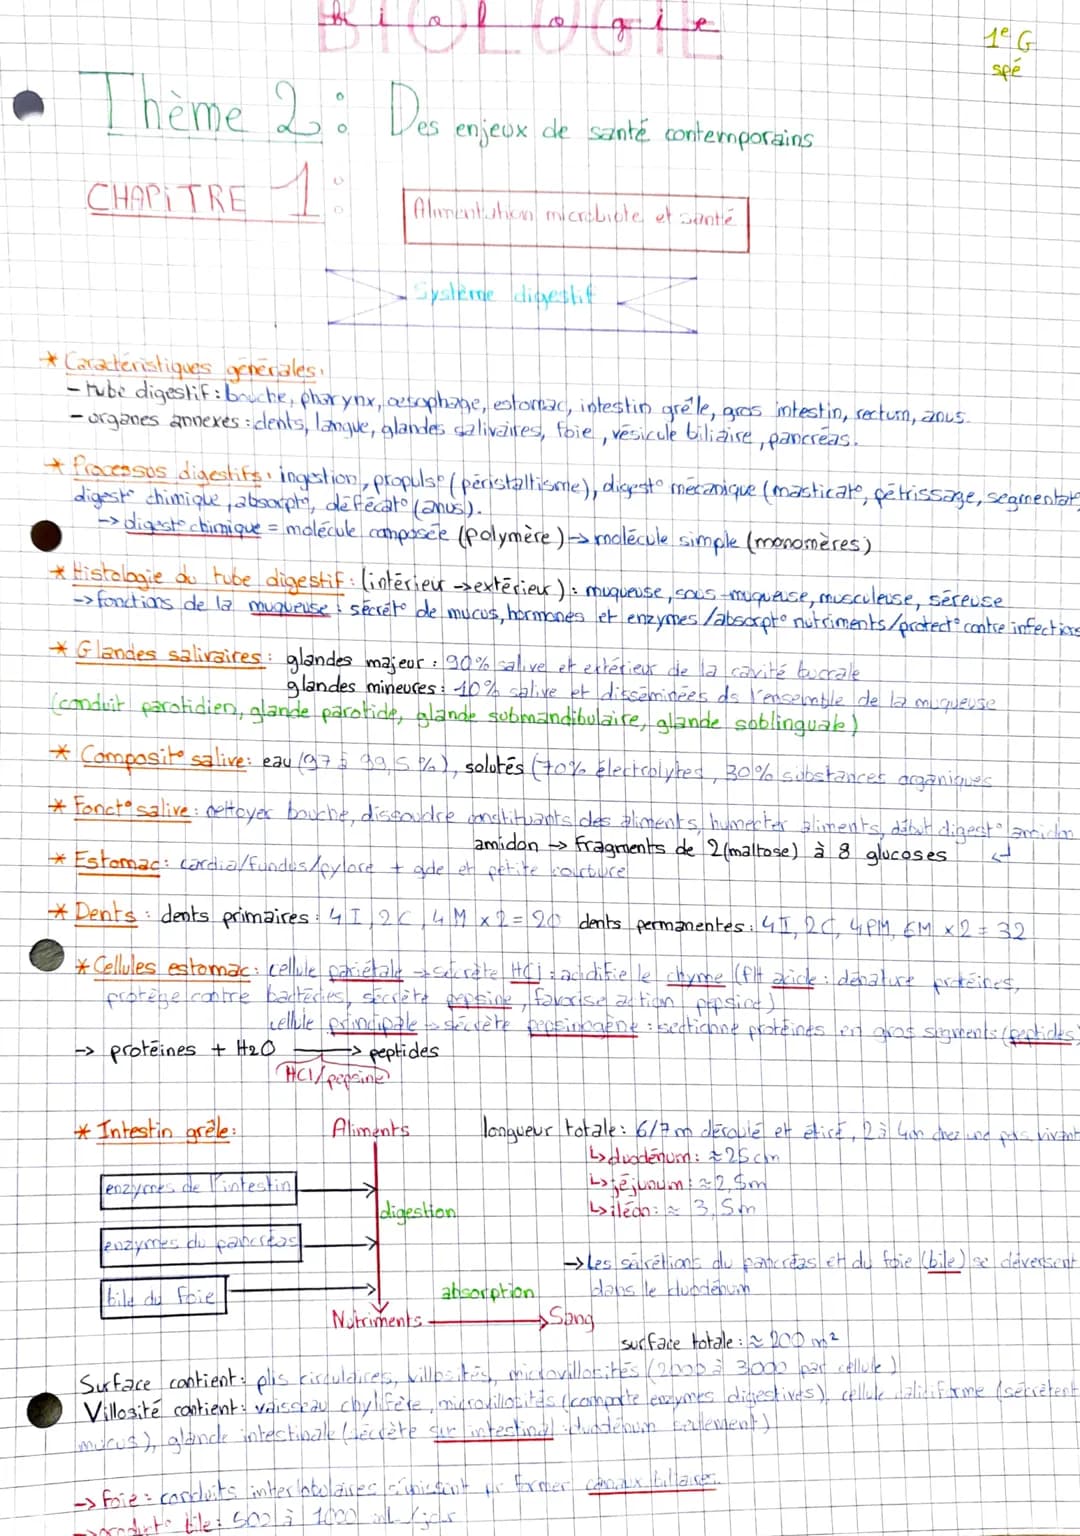 Biologie
BIOLOGIE
1e G
spé
Thème 2 : Des enjeux de santé contemporains
CHAPITRE 1 :
Alimentation microbiote et santé
Système digestif
* Caractéristiques générales:
- tube digestif : bouche, pharynx, œsophage, estomac, intestin grêle, gros intestin, rectum, anus.
- organes annexes : dents, langue, glandes salivaires, foie, vésicule biliaire, pancréas.
* Processus digestifs: ingestion, propuls° (péristaltisme), digest° mécanique (masticat°, pétrissage, segmentat°,
digest° chimique, absorpt°, défécat° (anus).
-> digest° chimique = molécule composée (polymère) -> molécule simple (monomères)
* Histologie du tube digestif : (intérieur -> extérieur) : muqueuse, sous-muqueuse, musculeuse, séreuse
-> fonctions de la muqueuse : sécrét° de mucus, hormones et enzymes / absorpt° nutriments / protect° contre infections
* Glandes salivaires : glandes majeur : 90% salive et extérieur de la cavité buccale
glandes mineures : 10% salive et disséminées ds l'ensemble de la muqueuse
(conduit parotidien, glande parotide, glande submandibulaire, glande soblinguale)
* Composit° salive : eau (97 à 99,5 %), solutés (70% électrolytes, 30% substances organiques
* Fonct° salive : nettoyer bouche, dissoudre constituants des aliments, humecter aliments, début digest° amidon
amidon -> fragments de 2 (maltose) à 8 glucoses
* Estomac : cardia/fundus/pylore + gde et petite courbure
* Dents : dents primaires : 4 I, 2 C, 4 M x 2 = 20 dents permanentes : 4 I, 2 C, 4 PM, 6M x 2 = 32
* Cellules estomac : cellule pariétale -> sécrète HCl : acidifie le chyme (PH acide : dénature protéines,
protège contre bactéries, sécrète pepsine, favorise action pepsine)
cellule principale -> sécrète pepsinogène : sectionne protéines en gros segments (peptides)
-> protéines + H2O -> peptides
HCl/pepsine
* Intestin grêle : Aliments longueur totale : 6/7 m déroulé et étiré, 2 à 4m chez une pers vivant
↳ duodénum : ≈ 25 cm
enzymes de l'intestin ↳ jéjunum : ≈ 2,5m
digestion ↳ iléon : ≈ 3,5m
enzymes du pancréas
-> Les sécrétions du pancréas et du foie (bile) se déversent
bile du foie absorption dans le duodénum
Nutriments Sang
surface totale : ≈ 200 m²
Surface contient : plis circulaires, villosités, microvillosités (2000 à 3000 par cellule)
Villosité contient : vaisseau chylifère, microvillosités (comporte enzymes digestives), cellule caliciforme (sécrètent
mucus), glande intestinale (sécrète suc intestinal : duodénum seulement)
-> foie : conduits interlobulaires s'unissent pr former canaux biliaires
-> product° bile : 500 à 1000 mL/jour